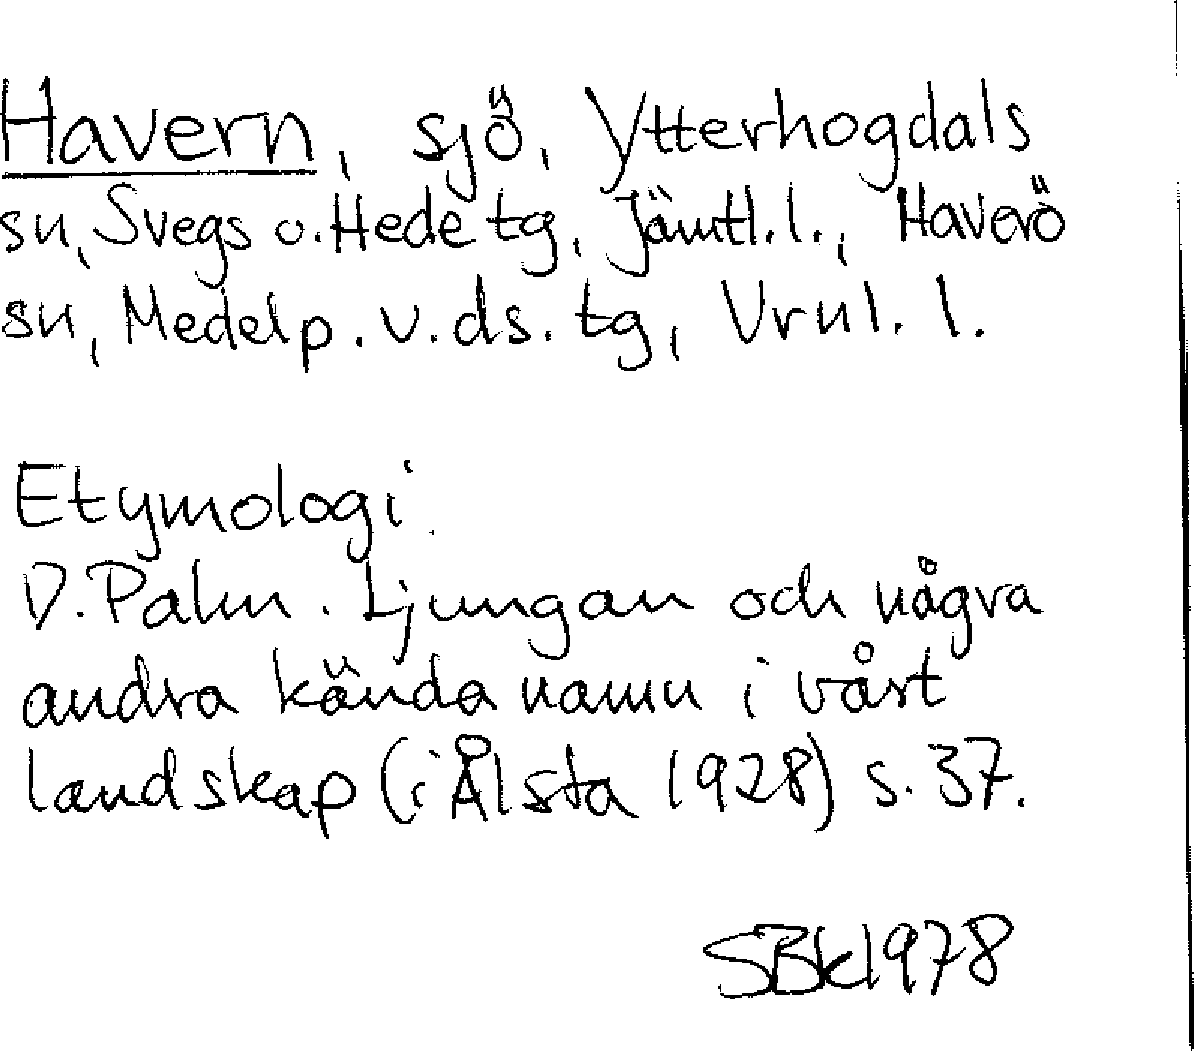 Havern, sjö, Ytterhogdals
sn, Svegs o. Hede tg, Jämtl. l., Haverö
sn, Medelp. v. ds. tg, Vrnl. l.
Etymologi.
D. Palm. Ljungan och några
andra kända namn i vårt
landskap (i Ålsta 1928) s. 37.
SBk1978